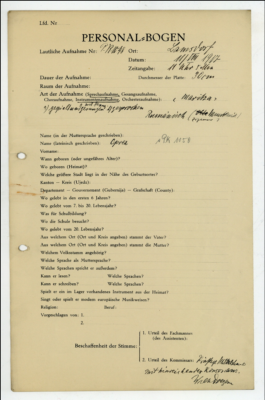 Lfd. Nr.
PERSONAL-BOGEN
Lautliche Aufnahme Nr.: Ort: Lamsdorf
Datum:
Zeitangabe:
Dauer der Aufnahme: Durchmesser der Platte: 30 cm
Raum der Aufnahme:
Art der Aufnahme (Sprechaufnahme, Gesangsaufnahme,
Choraufnahme, Instrumentenaufnahme, Orchesteraufnahme):
Rumänisch
PK 1159
Name (in der Muttersprache geschrieben):
Name (lateinisch geschrieben):
Vorname:
Wann geboren (oder ungefähres Alter)?
Wo geboren (Heimat)?
Welche größere Stadt liegt in der Nähe des Geburtsortes?
Kanton — Kreis (Ujedz):
Department — Gouvernement (Gubernija) — Grafschaft (County):
Wo gelebt in den ersten 6 Jahren?
Wo gelebt vom 7. bis 20. Lebensjahr?
Was für Schulbildung?
Wo die Schule besucht?
Wo gelebt vom 20. Lebensjahr?
Aus welchem Ort (Ort und Kreis angeben) stammt der Vater?
Aus welchem Ort (Ort und Kreis angeben) stammt die Mutter?
Welchem Volksstamm angehörig?
Welche Sprache als Muttersprache?
Welche Sprachen spricht er außerdem?
Kann er lesen? Welche Sprachen?
Kann er schreiben? Welche Sprachen?
Spielt er ein im Lager vorhandenes Instrument aus der Heimat?
Singt oder spielt er modern europäische Musikweisen?
Religion: Beruf:
Vorgeschlagen von: 1.
2.
Beschaffenheit der Stimme:
1. Urteil des Fachmannes:
(des Assistenten)
2. Urteil des Kommissars: